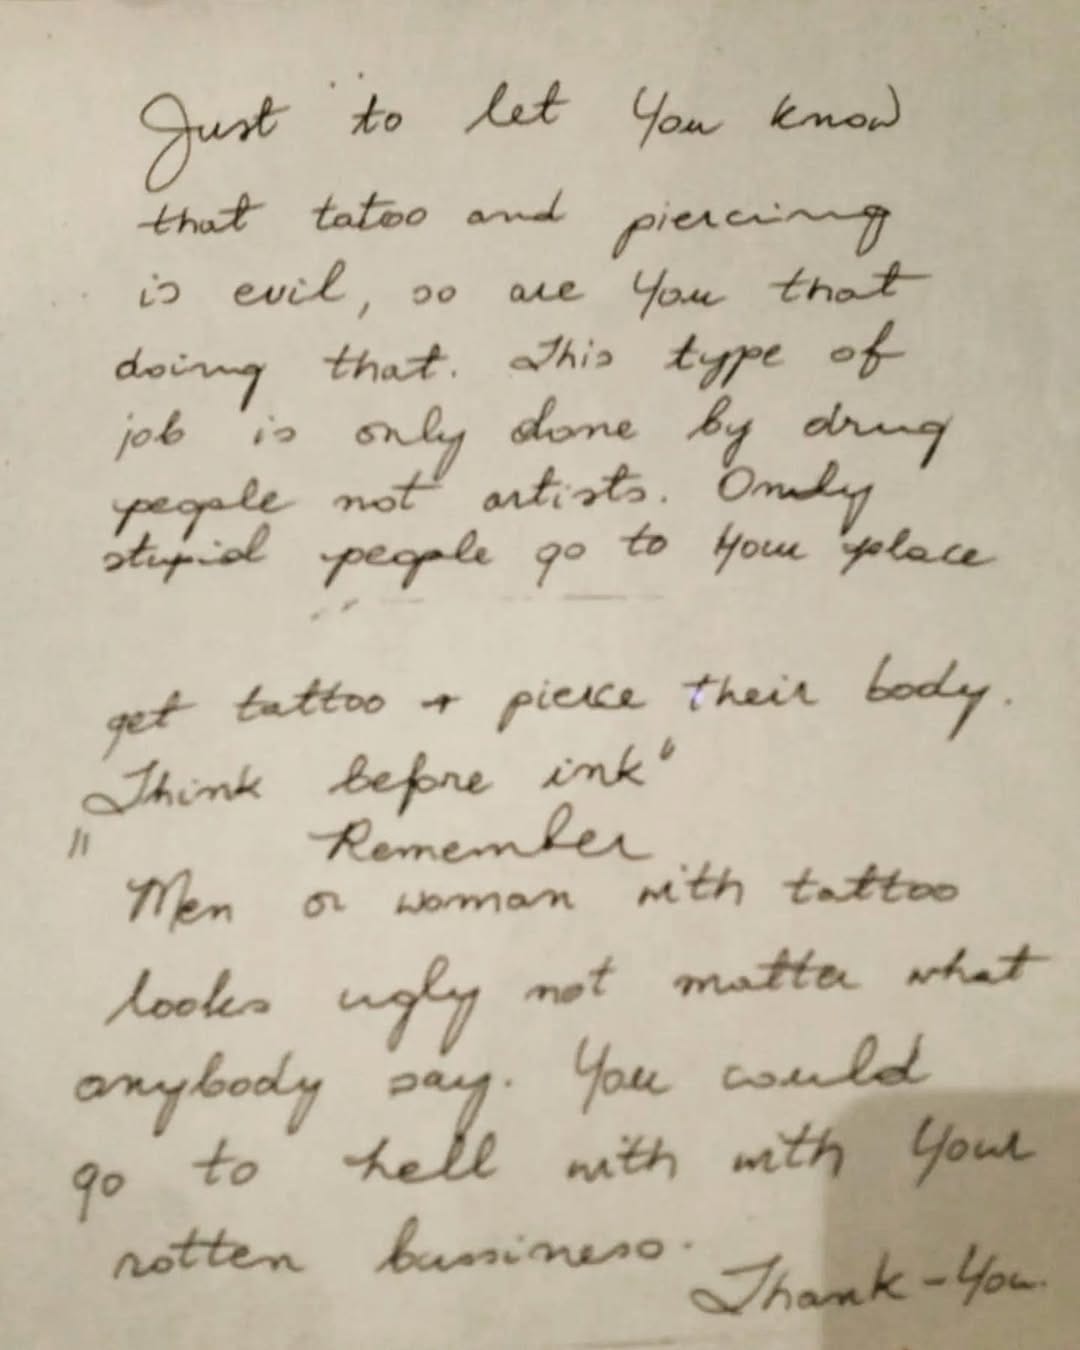 Just to let You know
that tatoo and piercing
is evil, so are You that
doing that. This type of
job is only done by drug
people not artists. Only
stupid people go to Your place
get tattoo + pierce their body.
Think before ink"
" Remember
Men or woman with tattoo
looks ugly not matter what
anybody say. You could
go to hell with with Your
rotten bussiness.
Thank-You.